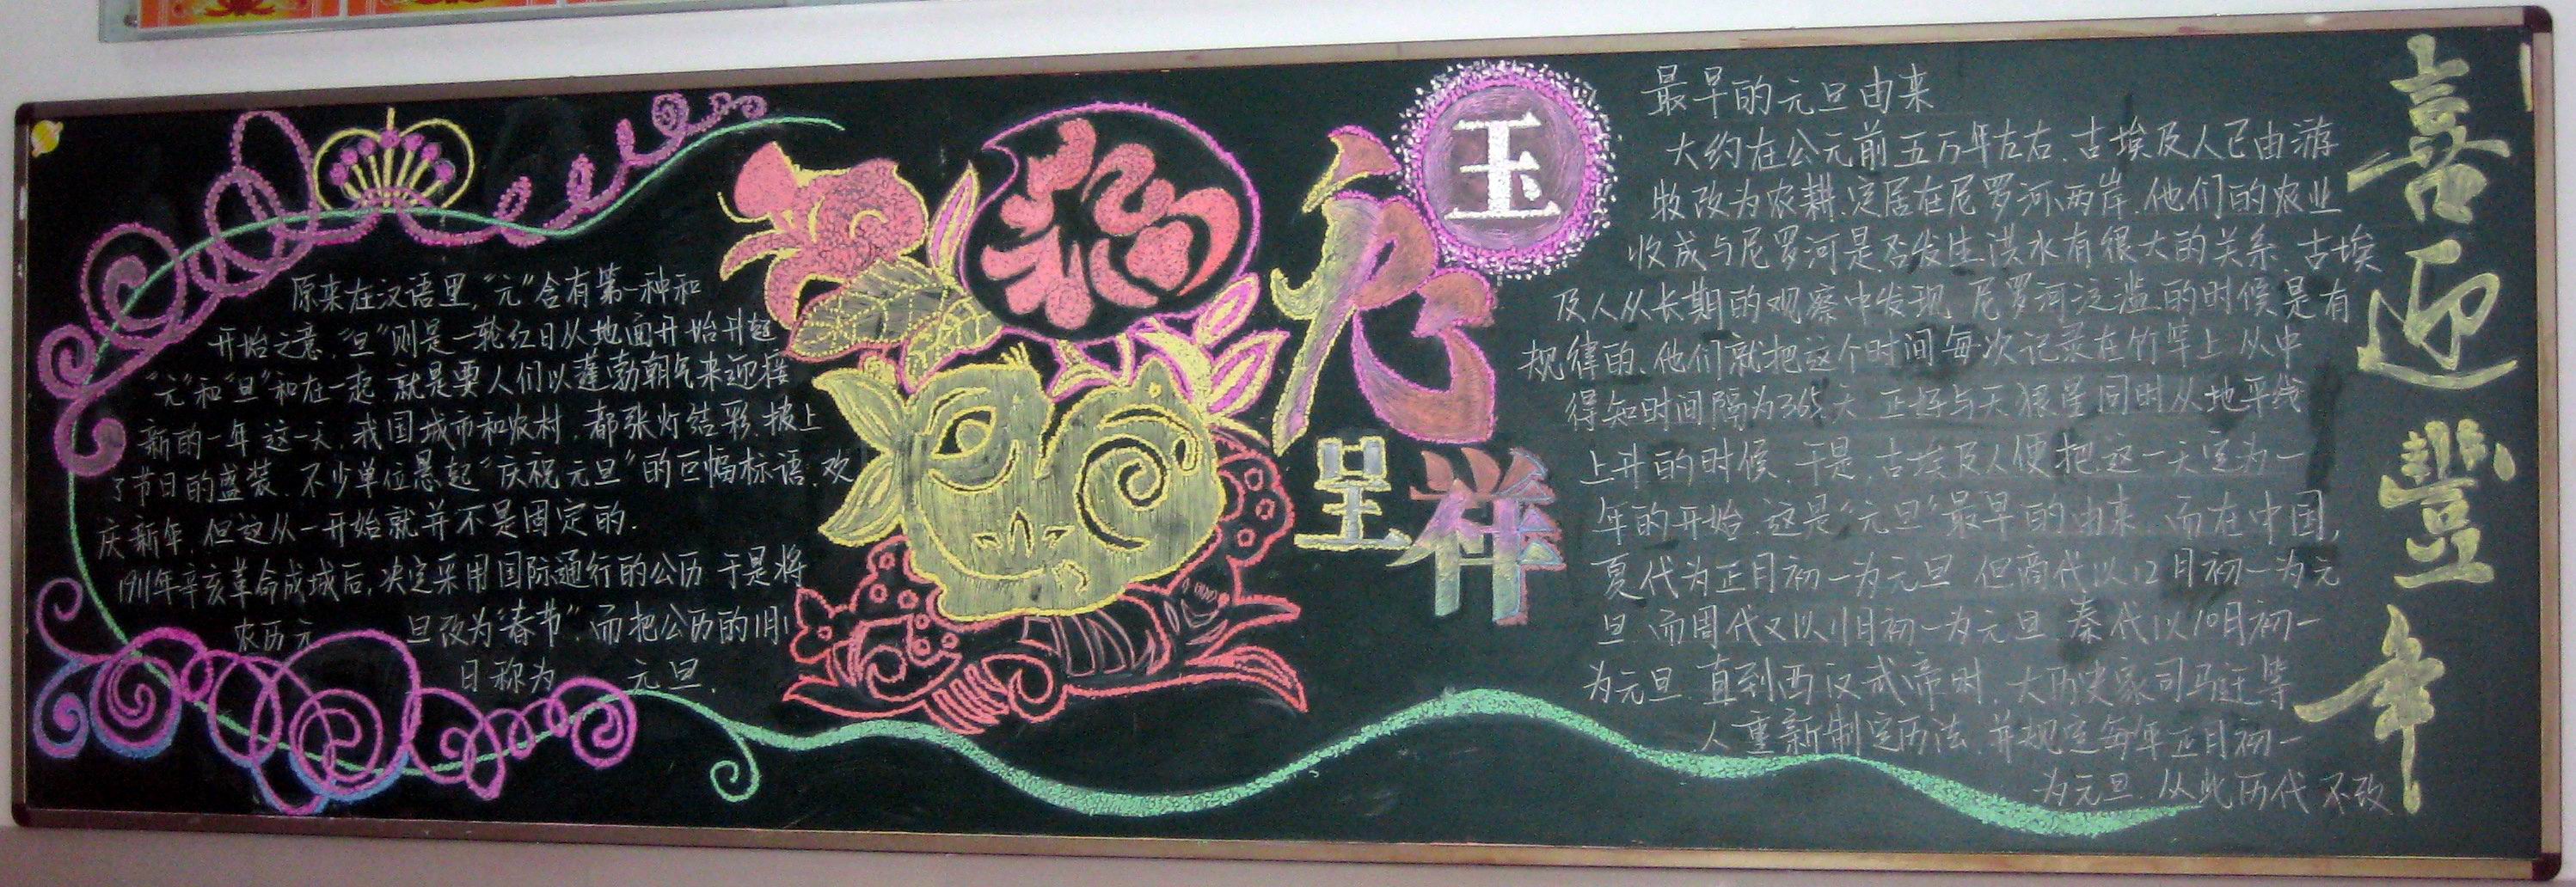 原来在汉语里，“元”含有第一种和
开始之意，“旦”则是一轮红日从地面开始升起
“元”和“旦”和在一起 就是要人们以蓬勃朝气来迎接
新的一年 这一天，我国城市和农村，都张灯结彩，披上
了节日的盛装，不少单位悬起“庆祝元旦”的巨幅标语，欢
庆新年，但这从一开始就并不是固定的．
1911年辛亥革命成城后，决定采用国际通行的公历 于是将
农历元旦改为“春节”，而把公历的1月1
日称为元旦．
玉
虎
呈祥
最早的元旦由来
大约在公元前五万年左右，古埃及人已由游
牧改为农耕，定居在尼罗河两岸，他们的农业
收成与尼罗河是否发生洪水有很大的关系 古埃
及人从长期的观察中发现 尼罗河泛滥的时候是有
规律的，他们就把这个时间每次记录在竹竿上 从中
得知时间隔为365天 正好与天狼星同时从地平线
上升的时候，于是，古埃及人便把这一天定为一
年的开始，这是“元旦”最早的由来，而在中国，
夏代为正月初一为元旦 但商代以12月初一为元
旦，而周代又以11月初一为元旦 秦代以10月初一
为元旦 直到西汉武帝时，大历史家司马迁等
人重新制定历法，并规定每年正月初一
为元旦，从此历代不改
喜迎豐年